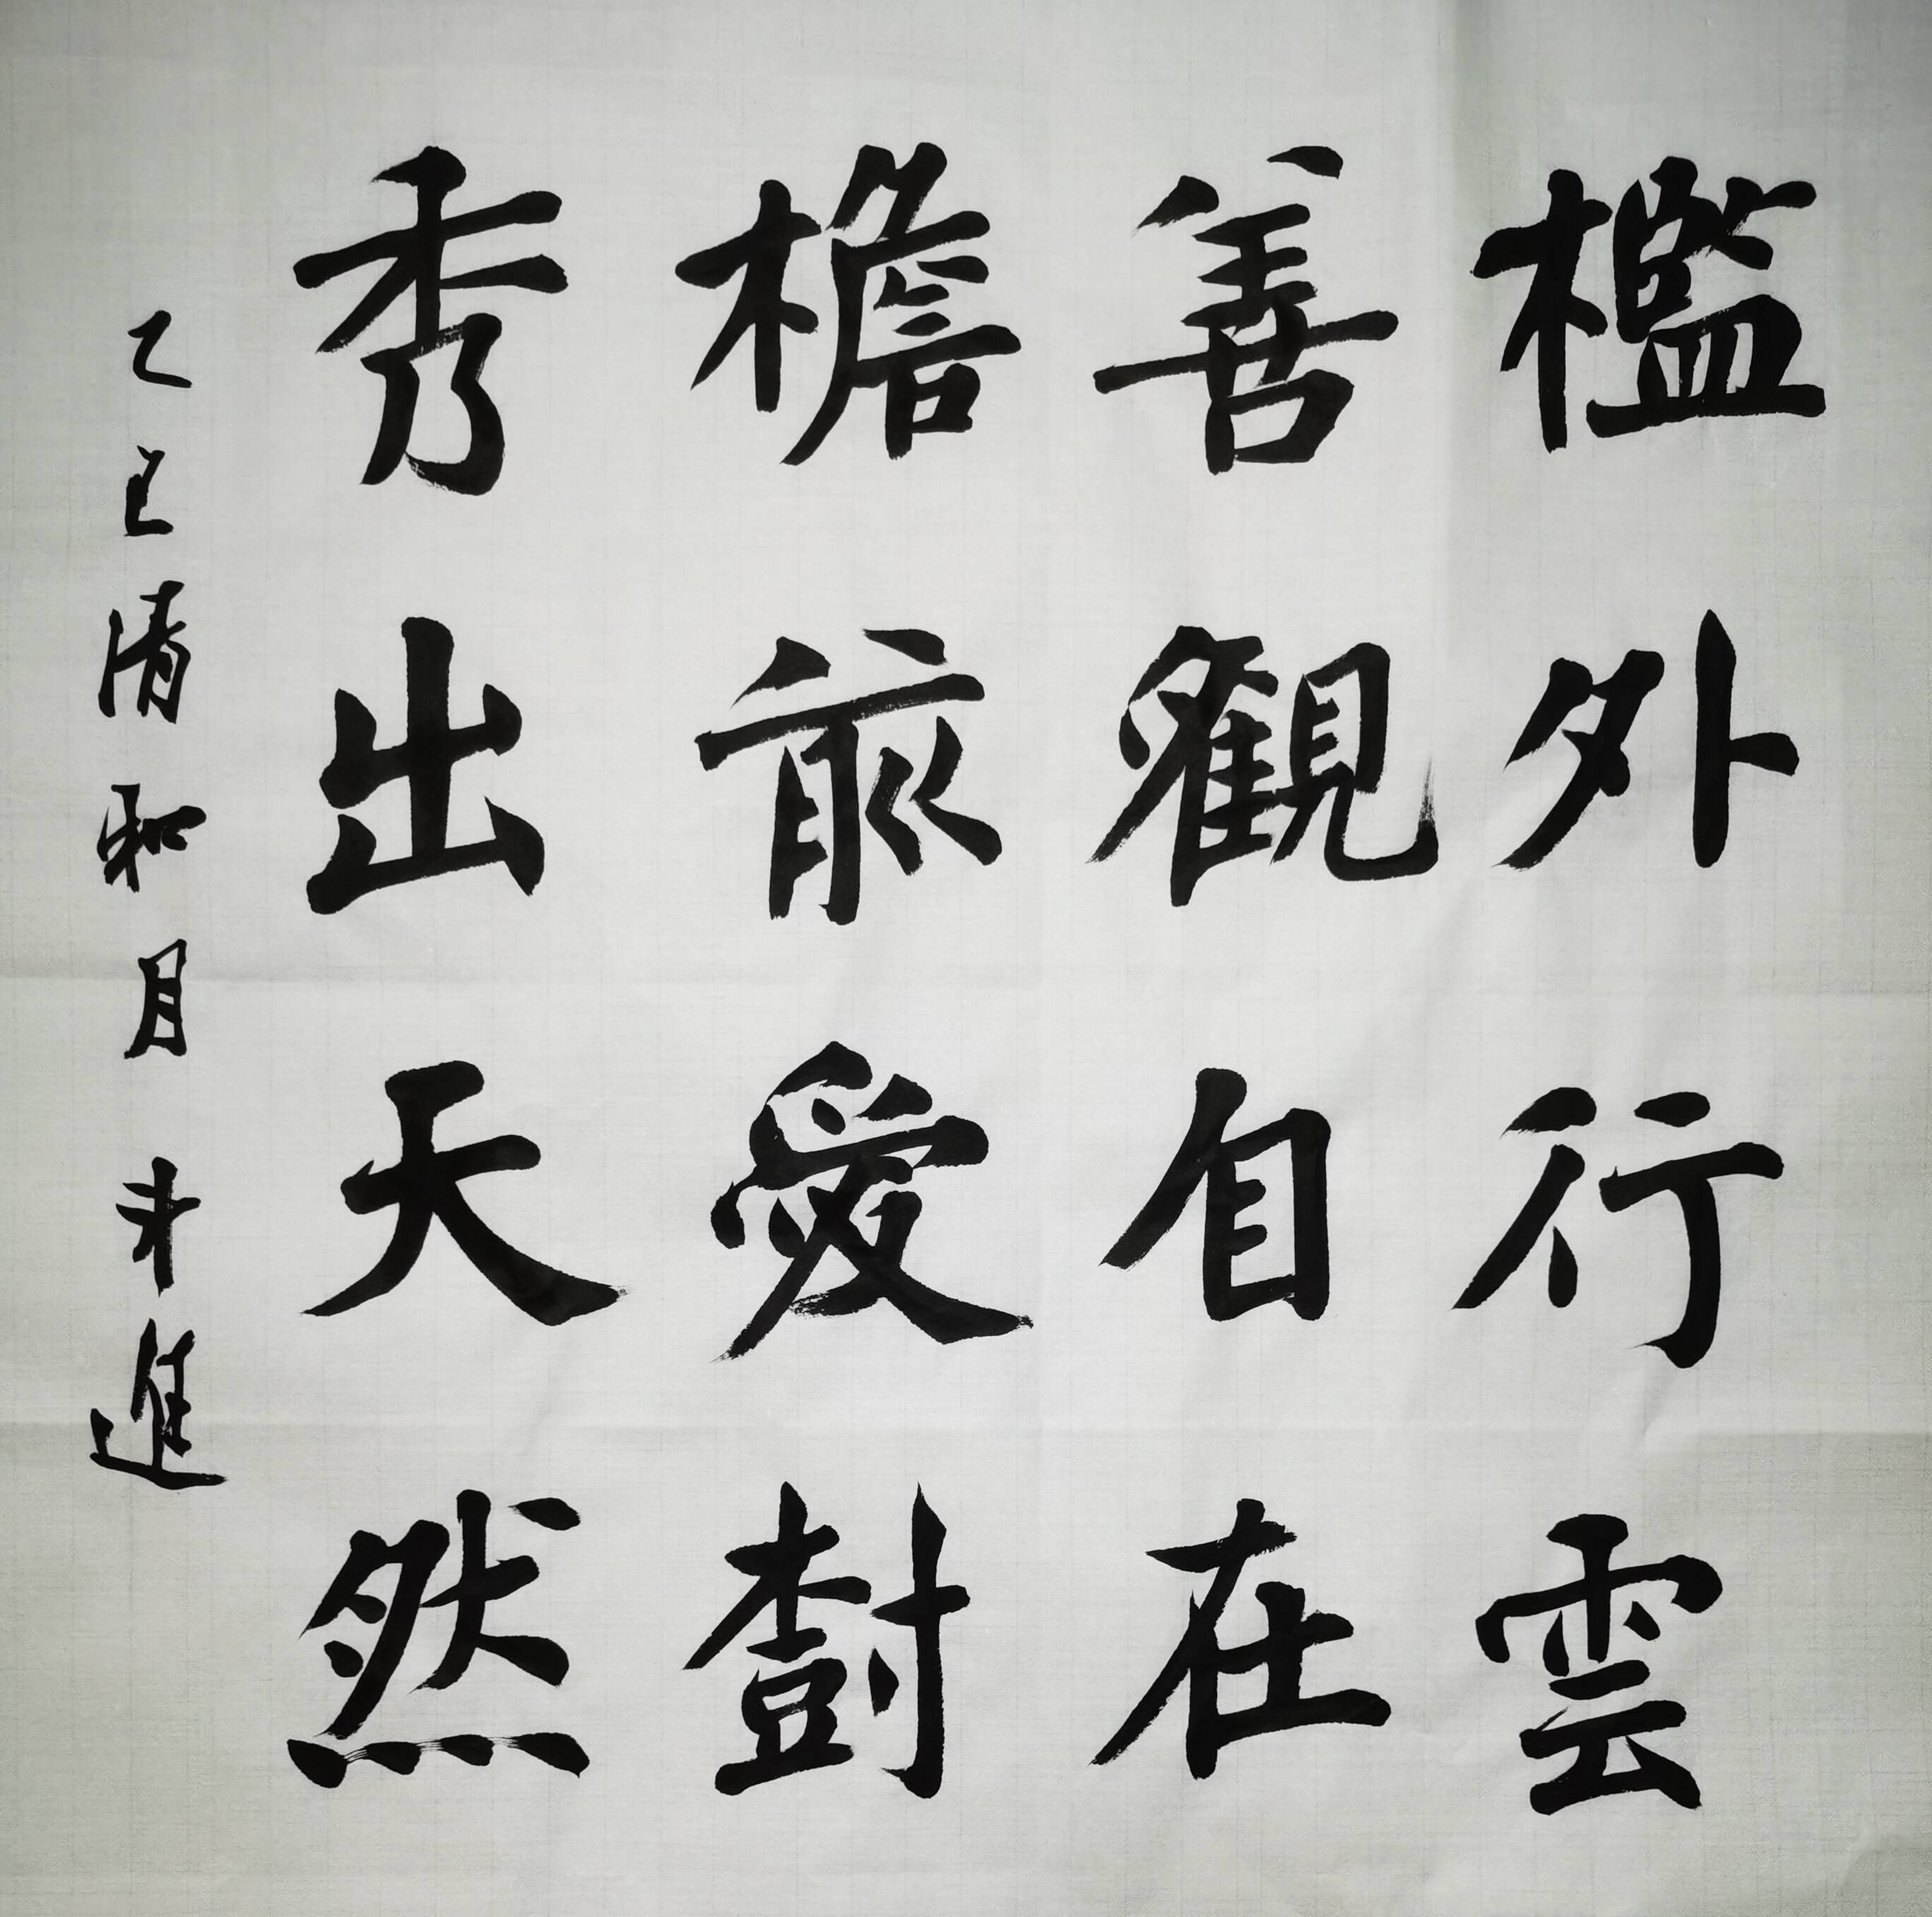 檻外行雲
善観自在
檐前愛樹
秀出天然
乙巳清和月 進